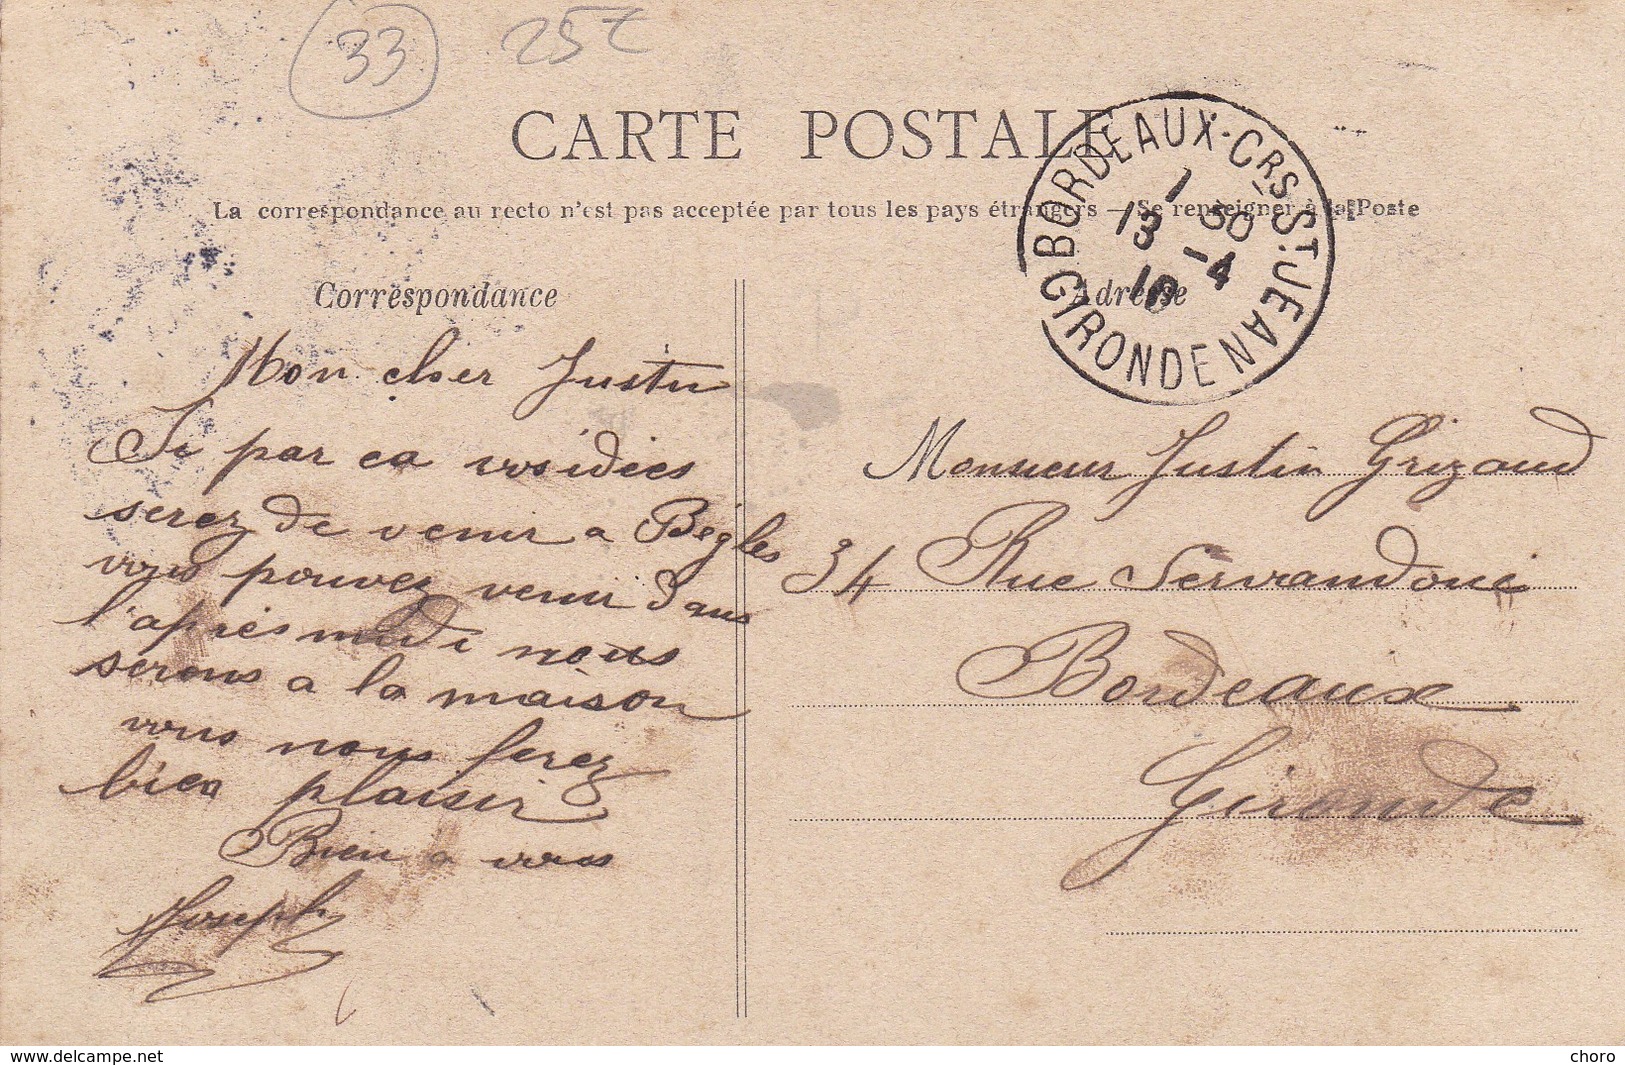 33 25
CARTE POSTALE
BORDEAUX-CRS ST JEAN
GIRONDE
1 50
13 -4
10
La correspondance au recto n'est pas acceptée par tous les pays étrangers — Se renseigner à la Poste
Correspondance
Mon cher Justin
Si par ca vos idées
serez de venir a Bègles
vous pouvez venir dans
l'après midi nous
serons a la maison
vous nous ferez
bien plaisir
Bien a vous
Joseph
Adresse
Monsieur Justin Grizaud
34 Rue Servandoni
Bordeaux
Gironde
www.delcampe.net
choro